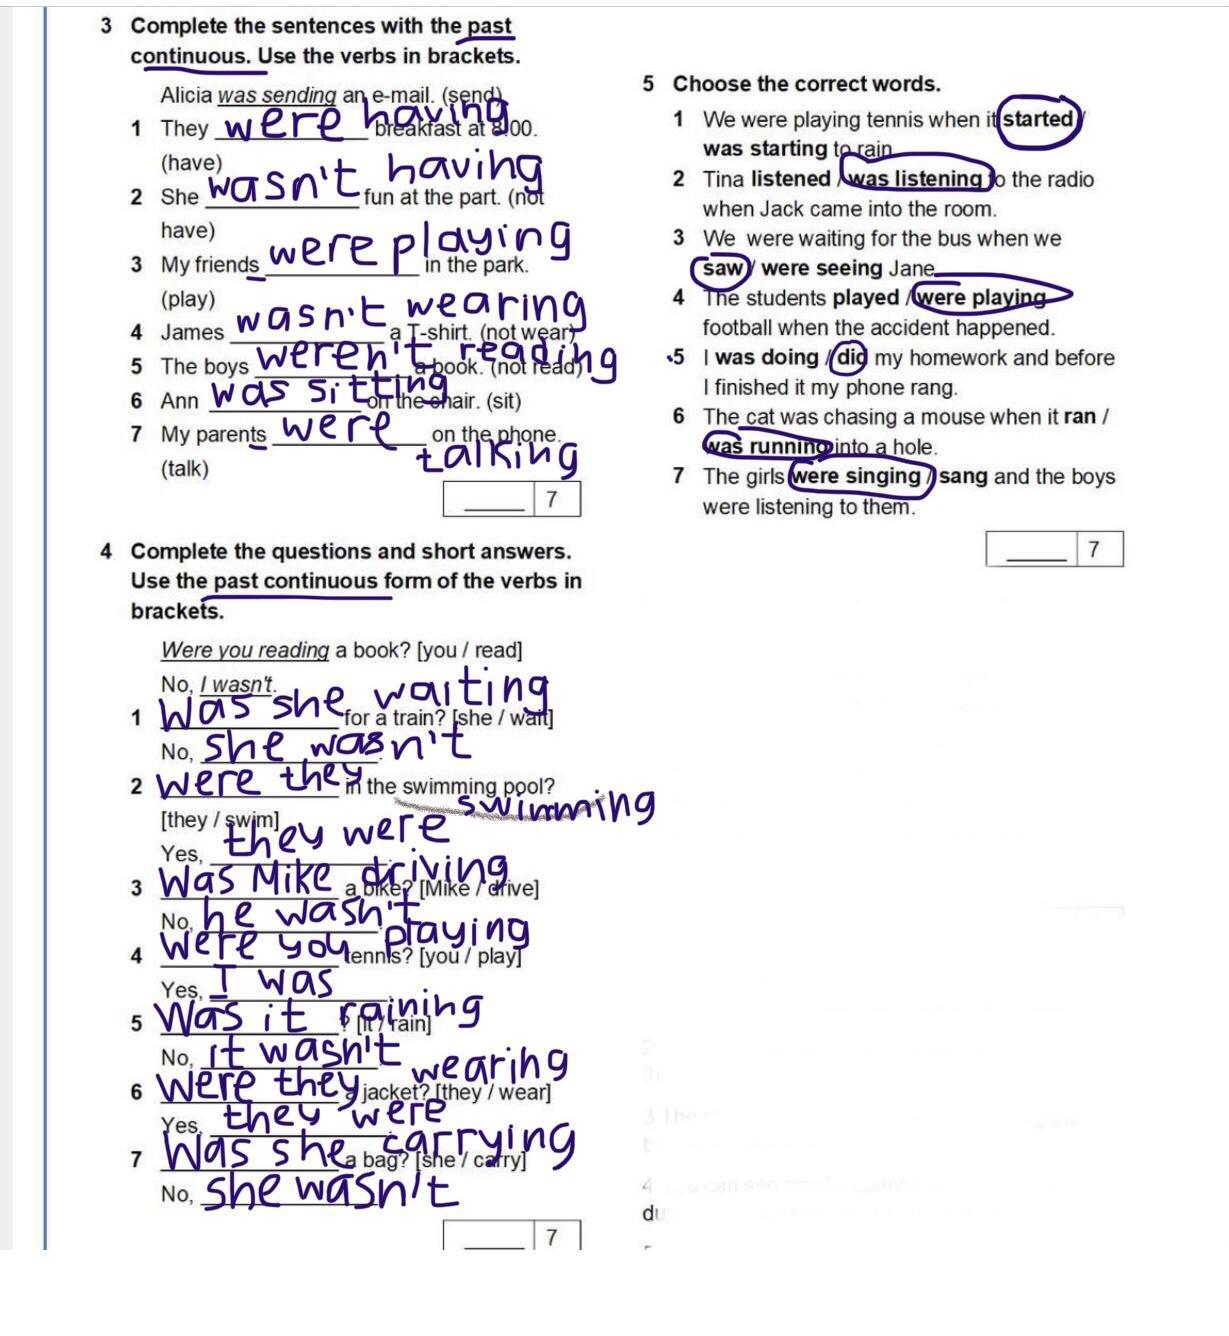 3 Complete the sentences with the past
continuous. Use the verbs in brackets.
Alicia was sending an e-mail. (send)
1 They were having breakfast at 8.00.
(have)
2 She wasn't having fun at the part. (not
have)
3 My friends were playing in the park.
(play)
4 James wasn't wearing a T-shirt. (not wear)
5 The boys weren't reading a book. (not read)
6 Ann was sitting on the chair. (sit)
7 My parents were on the phone.
talking
(talk)
7
4 Complete the questions and short answers.
Use the past continuous form of the verbs in
brackets.
Were you reading a book? [you / read]
No, I wasn't.
1 Was she waiting for a train? [she / wait]
No, she wasn't
2 were they in the swimming pool?
swimming
[they / swim]
Yes, they were
3 Was Mike driving a bike? [Mike / drive]
No, he wasn't
4 were you playing tennis? [you / play]
Yes, I was
5 Was it raining ? [it / rain]
No, it wasn't
6 Were they wearing jacket? [they / wear]
Yes, they were
7 Was she carrying a bag? [she / carry]
No, she wasn't
7
5 Choose the correct words.
1 We were playing tennis when it started /
was starting to rain
2 Tina listened / was listening to the radio
when Jack came into the room.
3 We were waiting for the bus when we
saw / were seeing Jane
4 The students played / were playing
football when the accident happened.
5 I was doing / did my homework and before
I finished it my phone rang.
6 The cat was chasing a mouse when it ran /
was running into a hole.
7 The girls were singing / sang and the boys
were listening to them.
7
3 The
4
du